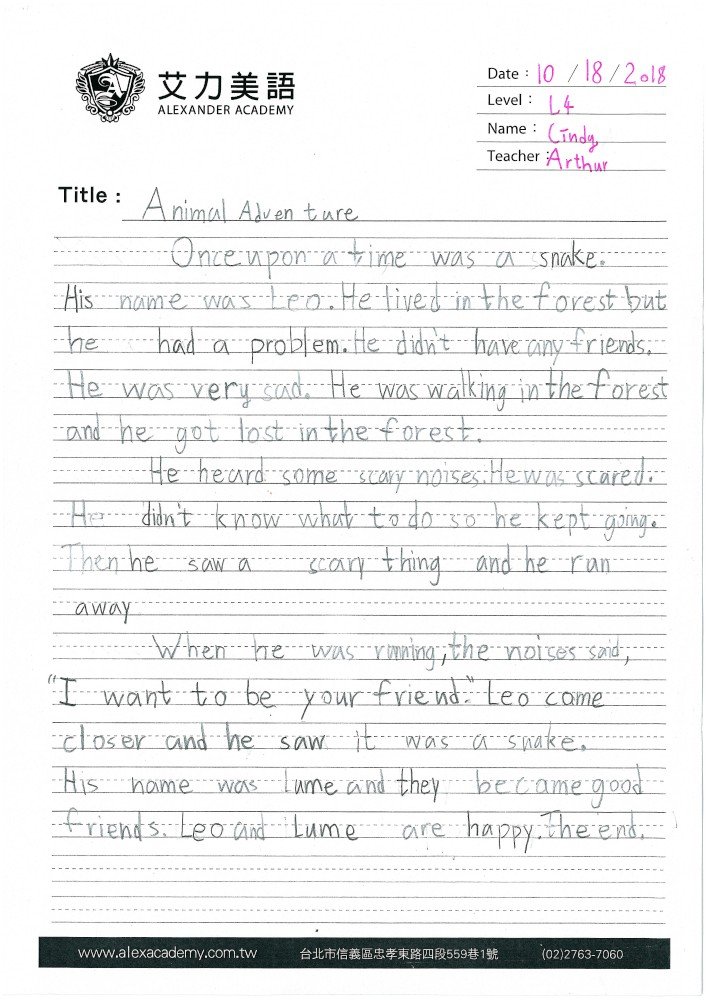 艾力美語
ALEXANDER ACADEMY
Date : 10 / 18 / 2018
Level : L4
Name : Cindy
Teacher : Arthur
Title : Animal Adventure
Once upon a time was a snake.
His name was Leo. He lived in the forest but
he had a problem. He didn't have any friends.
He was very sad. He was walking in the forest
and he got lost in the forest.
He heard some scary noises. He was scared.
He didn't know what to do so he kept going.
Then he saw a scary thing and he run
away
When he was running, the noises said,
"I want to be your friend." Leo came
closer and he saw it was a snake.
His name was Lume and they became good
friends. Leo and Lume are happy. The end.
www.alexacademy.com.tw 台北市信義區忠孝東路四段559巷1號 (02)2763-7060